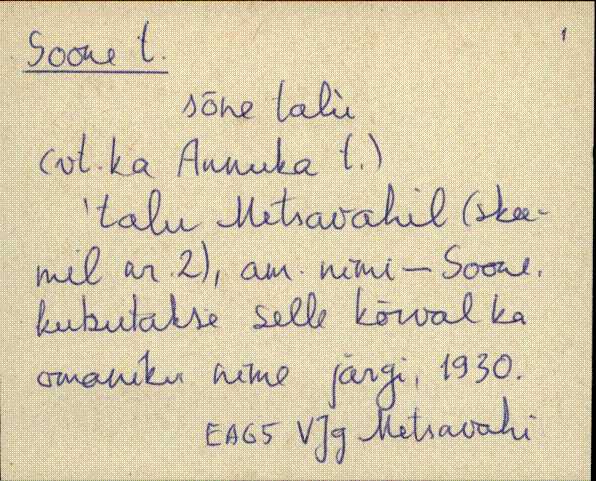 Soone t.
1
sõne talu
(vt. ka Annuka t.)
'talu Metsavahil (skee-
mil nr. 2), am. nimi - Soone.
kutsutakse selle kõrval ka
omaniku nime järgi, 1930.
EAG5 VJg Metsavahi